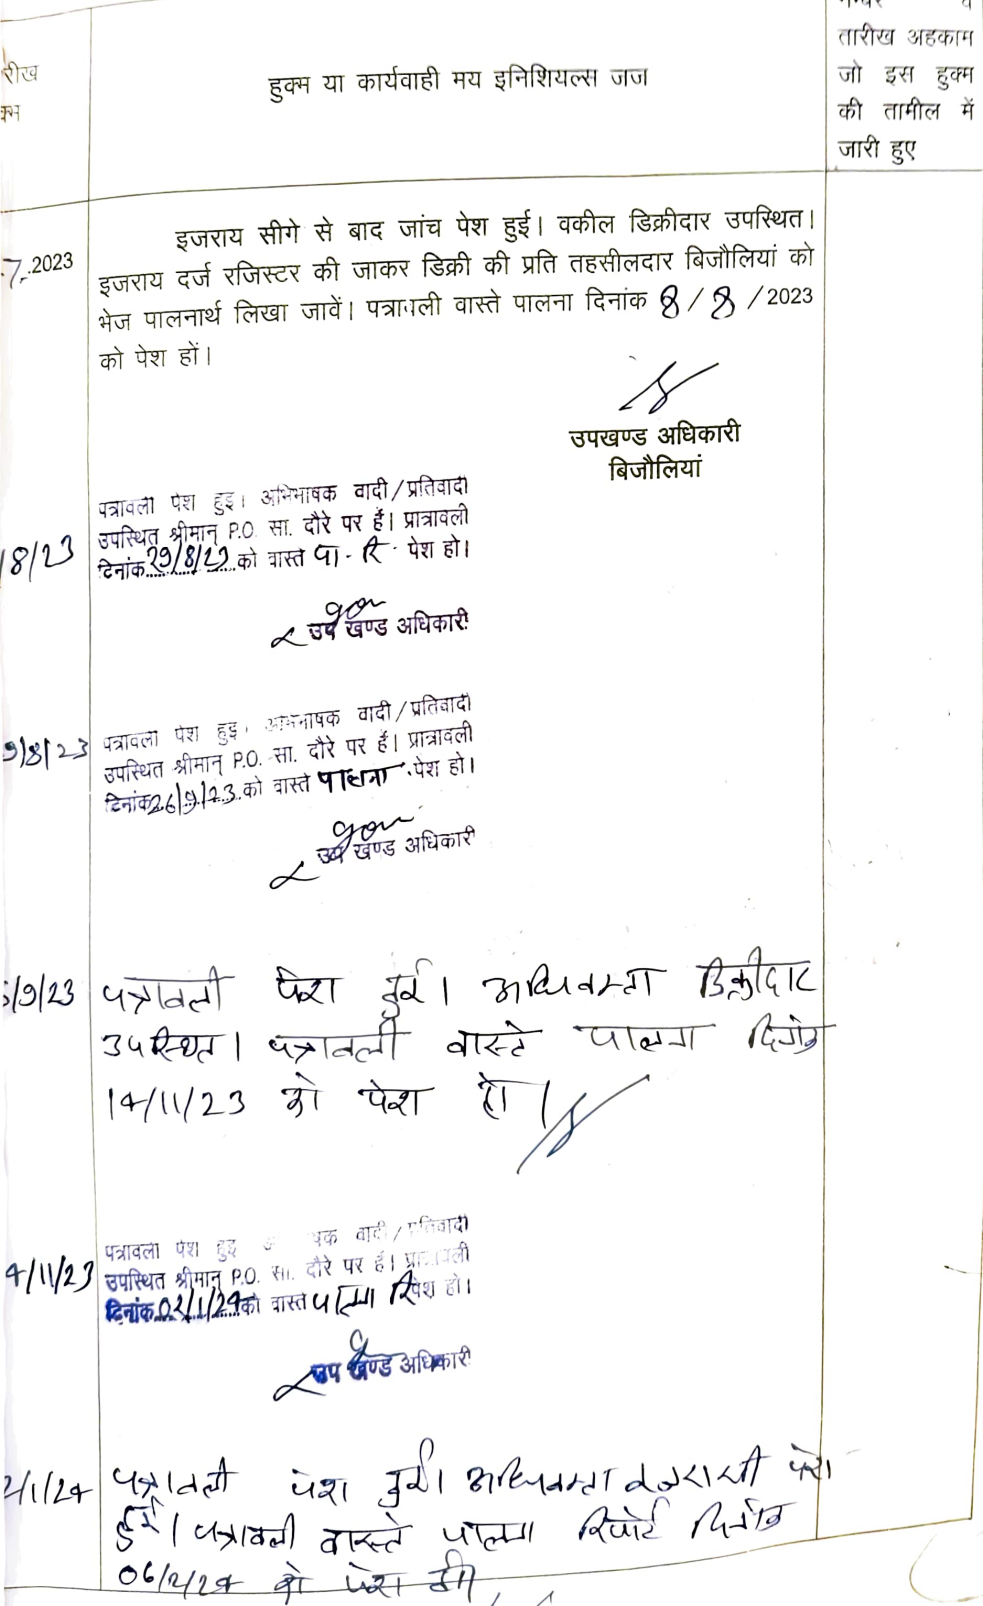 रीख
क्म
हुक्म या कार्यवाही मय इनिशियल्स जज
तारीख अहकाम
जो इस हुक्म
की तामील में
जारी हुए
7.2023
इजराय सीगे से बाद जांच पेश हुई। वकील डिक्रीदार उपस्थित।
इजराय दर्ज रजिस्टर की जाकर डिक्री की प्रति तहसीलदार बिजौलियां को
भेज पालनार्थ लिखा जावें। पत्रावली वास्ते पालना दिनांक 8/8/2023
को पेश हों।
उपखण्ड अधिकारी
बिजौलियां
/8/23
पत्रावली पेश हुइ। अभिभाषक वादी/प्रतिवादी
उपस्थित श्रीमान् P.O. सा. दौरे पर हैं। प्रात्रावली
दिनांक 29/8/23 को वास्ते पा. रि. पेश हो।
उप खण्ड अधिकारी
9/8/23
पत्रावली पेश हुइ। अभिभाषक वादी/प्रतिवादी
उपस्थित श्रीमान् P.O. सा. दौरे पर हैं। प्रात्रावली
दिनांक 26/9/23 को वास्ते पालना पेश हो।
उप खण्ड अधिकारी
6/9/23
पत्रावली पेश हुई। अधिवक्ता डिक्रीदार
उपस्थित। पत्रावली वास्ते पालना दिनांक
14/11/23 को पेश हो।
4/11/23
पत्रावली पेश हुइ षक वादी/प्रतिवादी
उपस्थित श्रीमान् P.O. सा. दौरे पर हैं। प्रात्रावली
दिनांक 02/1/24 को वास्ते पालना रि पेश हो।
उप खण्ड अधिकारी
2/1/24
पत्रावली पेश हुई। अधिवक्ता पेश
हुई। पत्रावली वास्ते पालना रिपोर्ट दिनांक
06/2/24 को पेश हो।